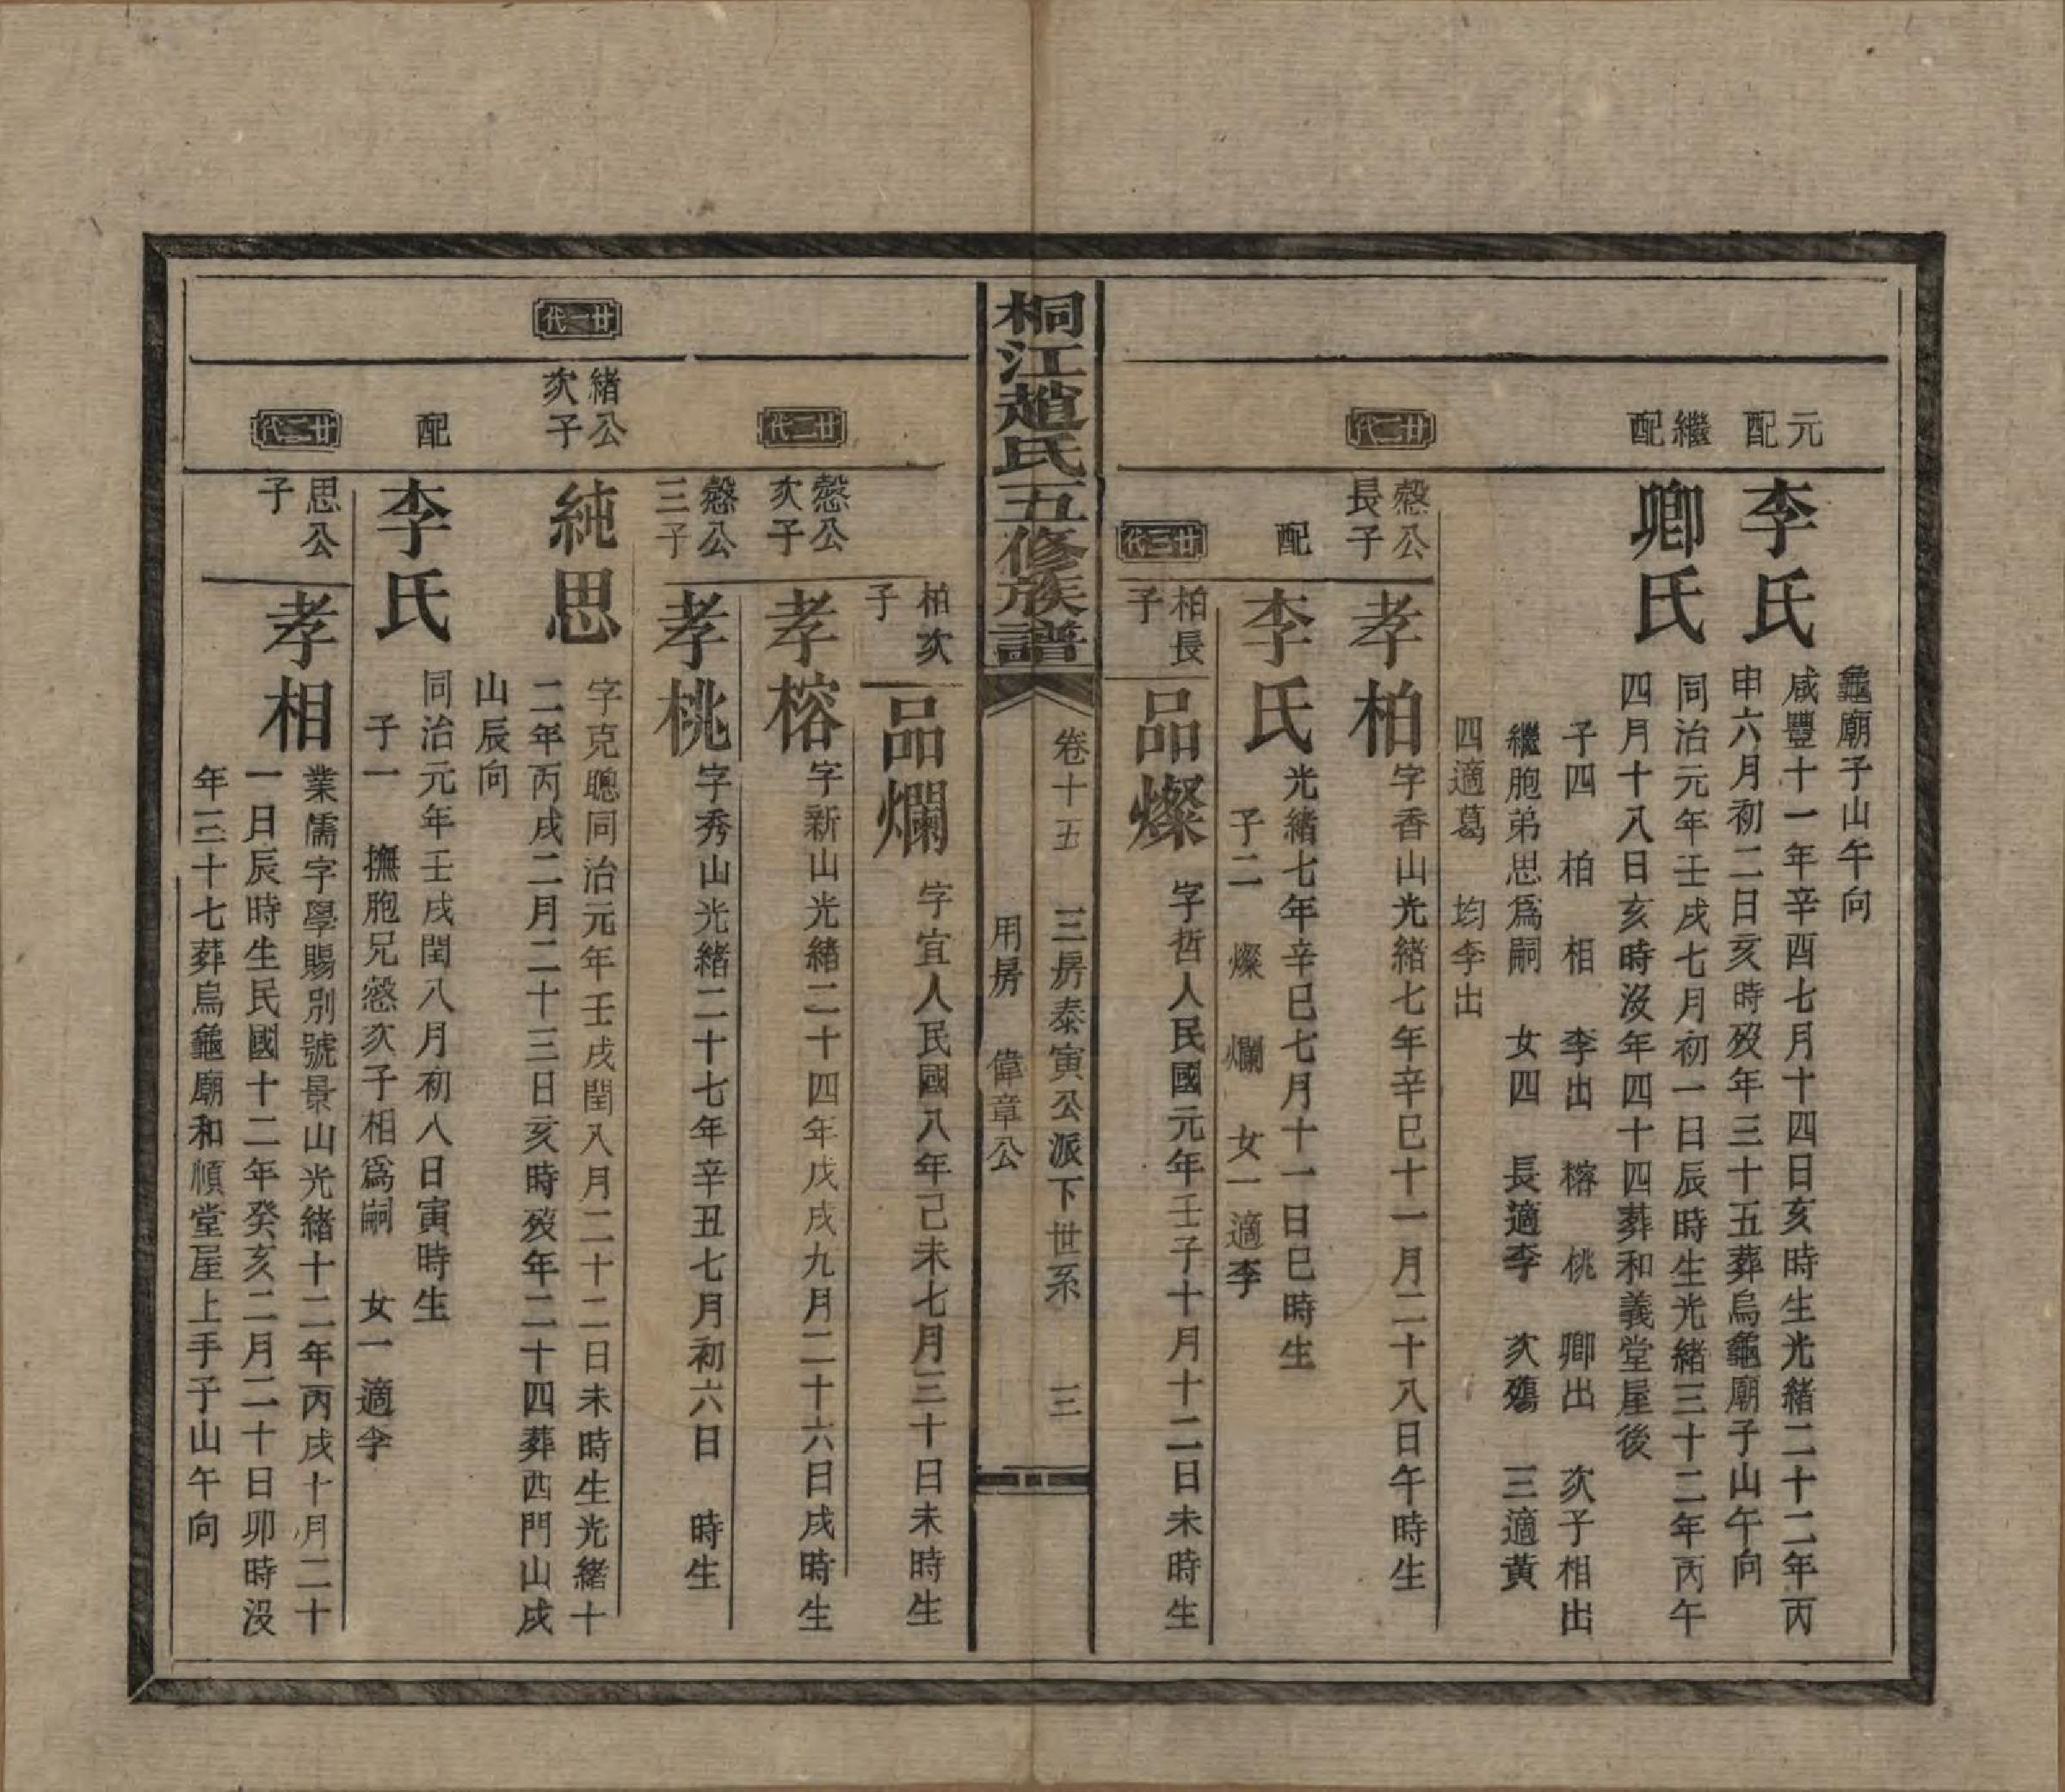 龜廟子山午向
元配
李氏
咸豐十一年辛酉七月十四日亥時生光緒二十二年丙
申六月初二日亥時歿年三十五葬烏龜廟子山午向
繼配
卿氏
同治元年壬戌七月初一日辰時生光緒三十二年丙午
四月十八日亥時沒年四十四葬和義堂屋後
子四 柏 相 李出 榕 桃 卿出 次子相出
繼胞弟思爲嗣 女四 長適李 次殤 三適黃
四適葛 均李出
廿二代
慤公
長子
孝柏
字香山光緒七年辛巳十一月二十八日午時生
配
李氏
光緒七年辛巳七月十一日巳時生
子二 燦 爛 女一適李
廿三代
柏長
子
品燦
字哲人民國元年壬子十月十二日未時生
桐江趙氏五修族譜
卷十五 三房泰寅公派下世系 三
用房 偉章公
柏次
子
品爛
字宜人民國八年己未七月三十日未時生
廿二代
慤公
次子
孝榕
字新山光緒二十四年戊戌九月二十六日戌時生
慤公
三子
孝桃
字秀山光緒二十七年辛丑七月初六日 時生
廿一代
緒公
次子
純思
字克聰同治元年壬戌閏八月二十二日未時生光緒十
二年丙戌二月二十三日亥時歿年二十四葬西門山戌
山辰向
配
李氏
同治元年壬戌閏八月初八日寅時生
子一 撫胞兄慤次子相爲嗣 女一適李
廿二代
思公
子
孝相
業儒字學賜別號景山光緒十二年丙戌十月二十
一日辰時生民國十二年癸亥二月二十日卯時沒
年三十七葬烏龜廟和順堂屋上手子山午向